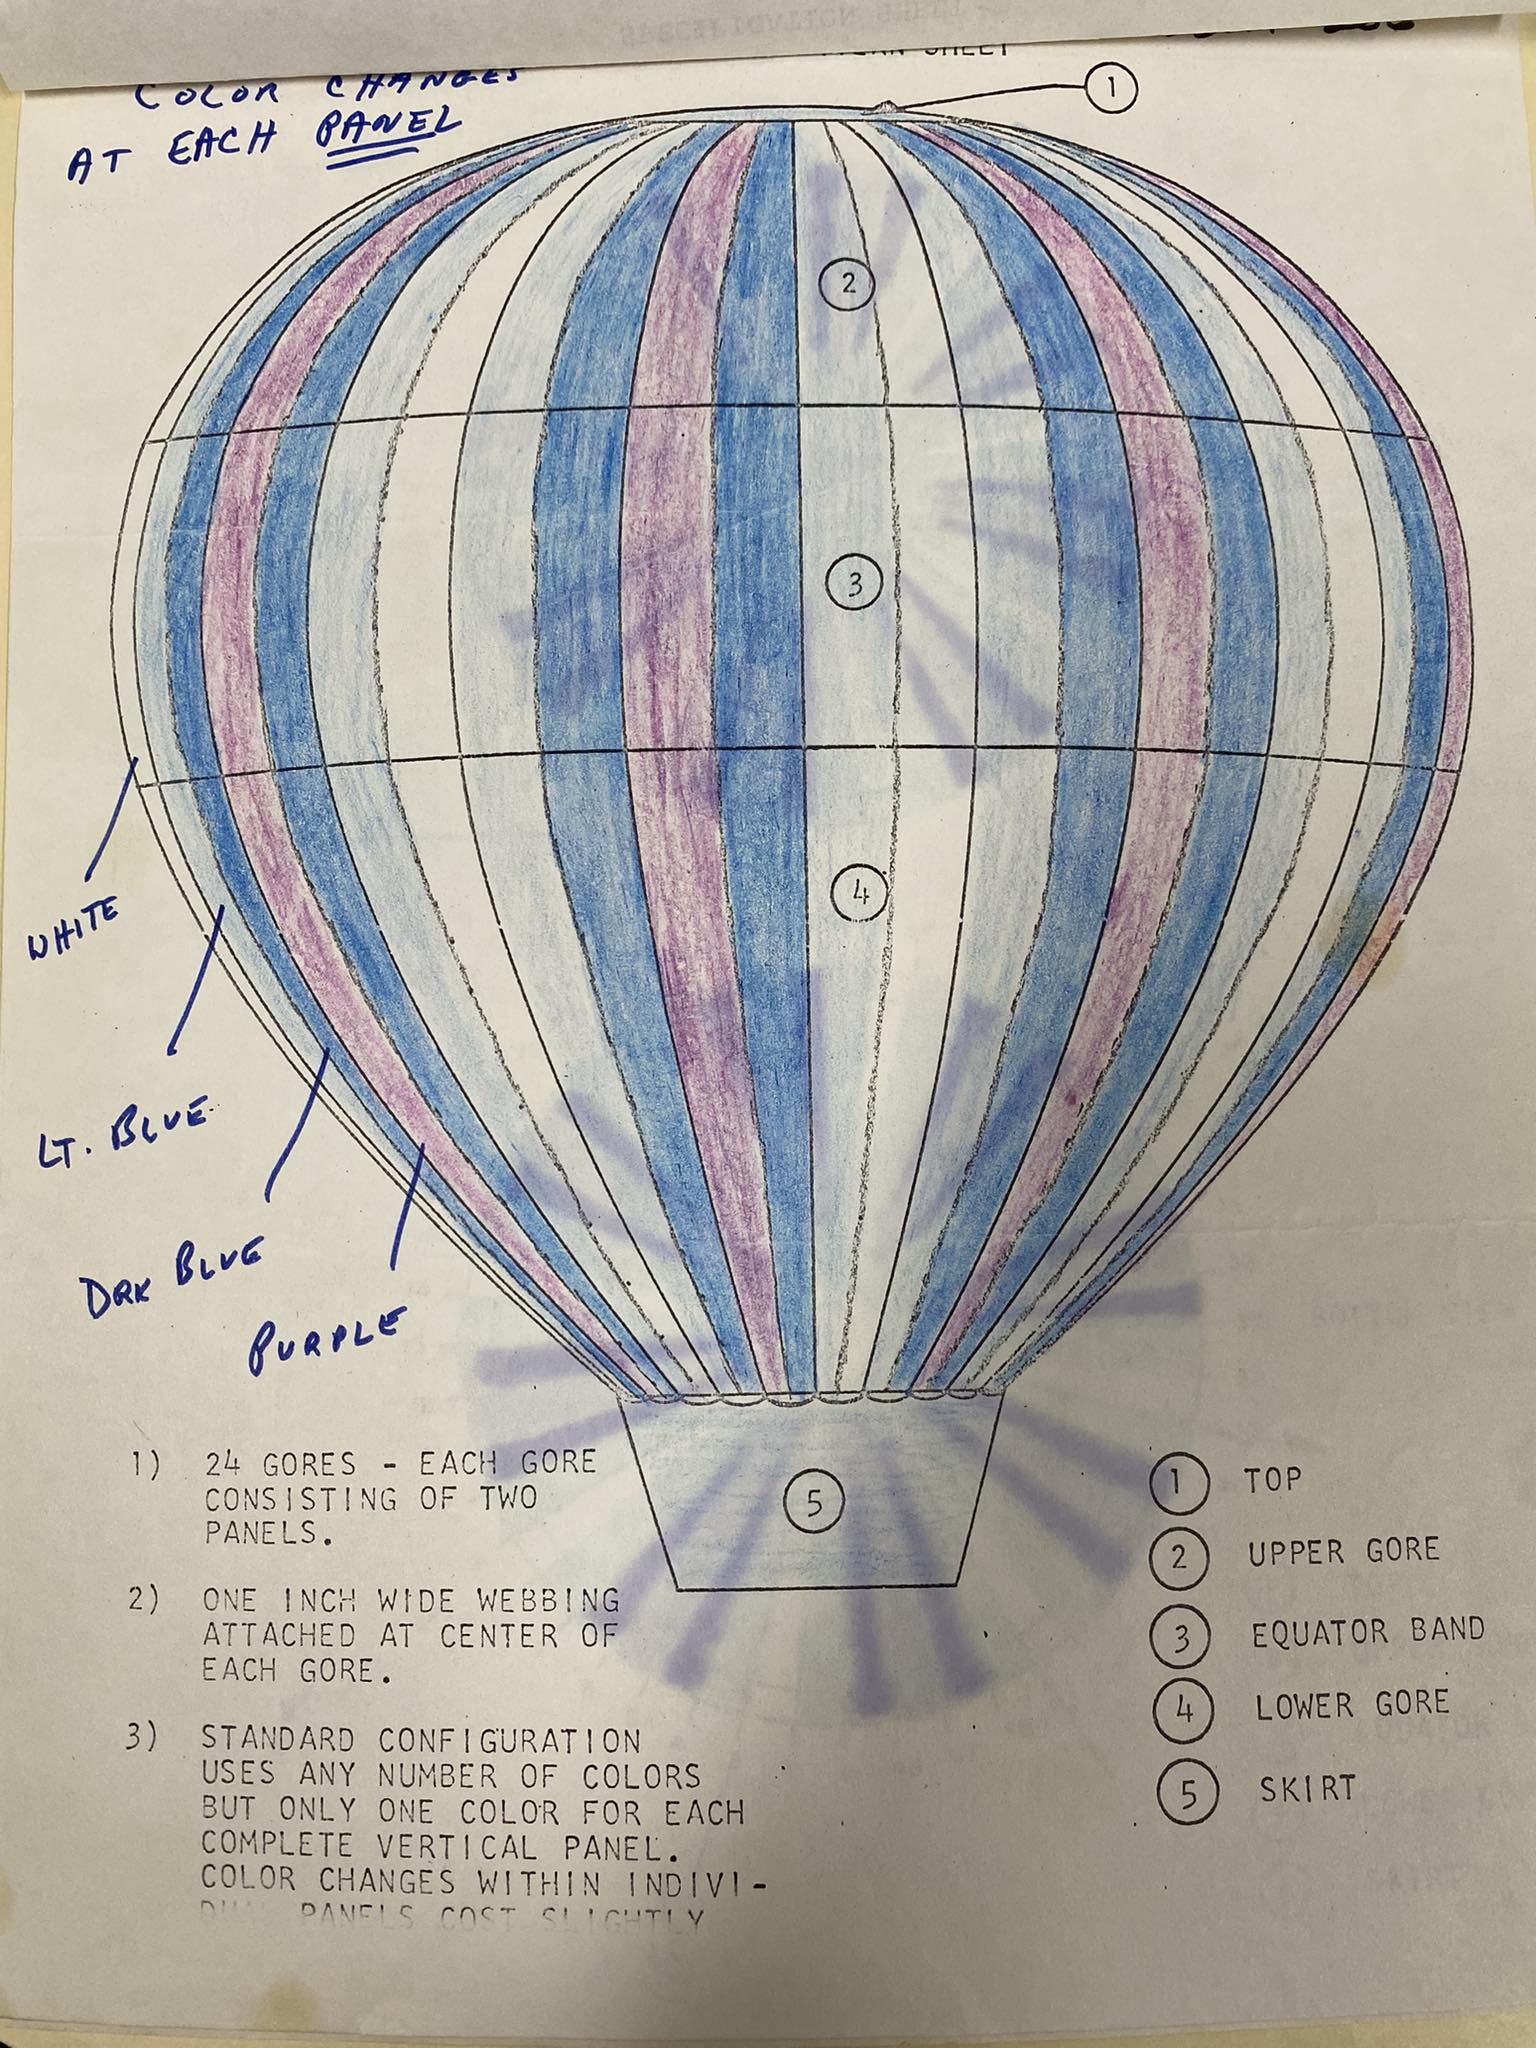 SHEET
COLOR CHANGES
AT EACH PANEL
1
2
3
4
WHITE
LT. BLUE
DRK BLUE
PURPLE
5
1) 24 GORES - EACH GORE
CONSISTING OF TWO
PANELS.
2) ONE INCH WIDE WEBBING
ATTACHED AT CENTER OF
EACH GORE.
3) STANDARD CONFIGURATION
USES ANY NUMBER OF COLORS
BUT ONLY ONE COLOR FOR EACH
COMPLETE VERTICAL PANEL.
COLOR CHANGES WITHIN INDIVI-
DUAL PANELS COST SLIGHTLY
1 TOP
2 UPPER GORE
3 EQUATOR BAND
4 LOWER GORE
5 SKIRT